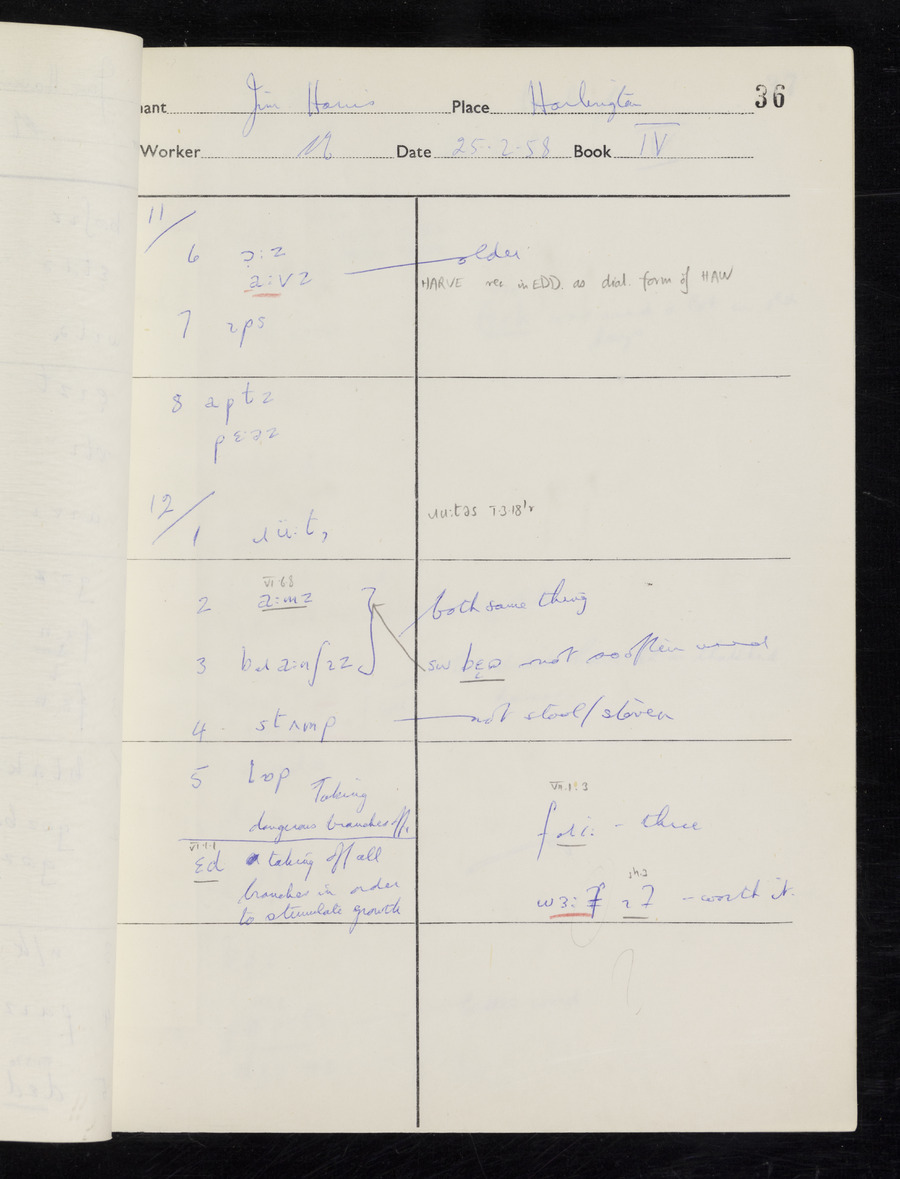 nant Jim Harris Place Harlington 36
Worker Date 25·2·58 Book IV
11/
6 ɔ:z
a:vz older
HARVE rec in EDD. as dial. form of HAW
7 ɪps
8 aptz
pɛ:əz
12/
1 ɹü:t, ɹu:təs 7·3·18'r
VI·6·8
2 a:mz both same thing
3 bɹa:nʃɪz sw bɛə not so often used
4 stʌmp not stool/stoven
5 lɒp Taking
dangerous branches off.
VI·1·1
ɛd taking off all
branches in order
to stimulate growth
VII·1·3
fɹi: - three
wɜ: - worth it.